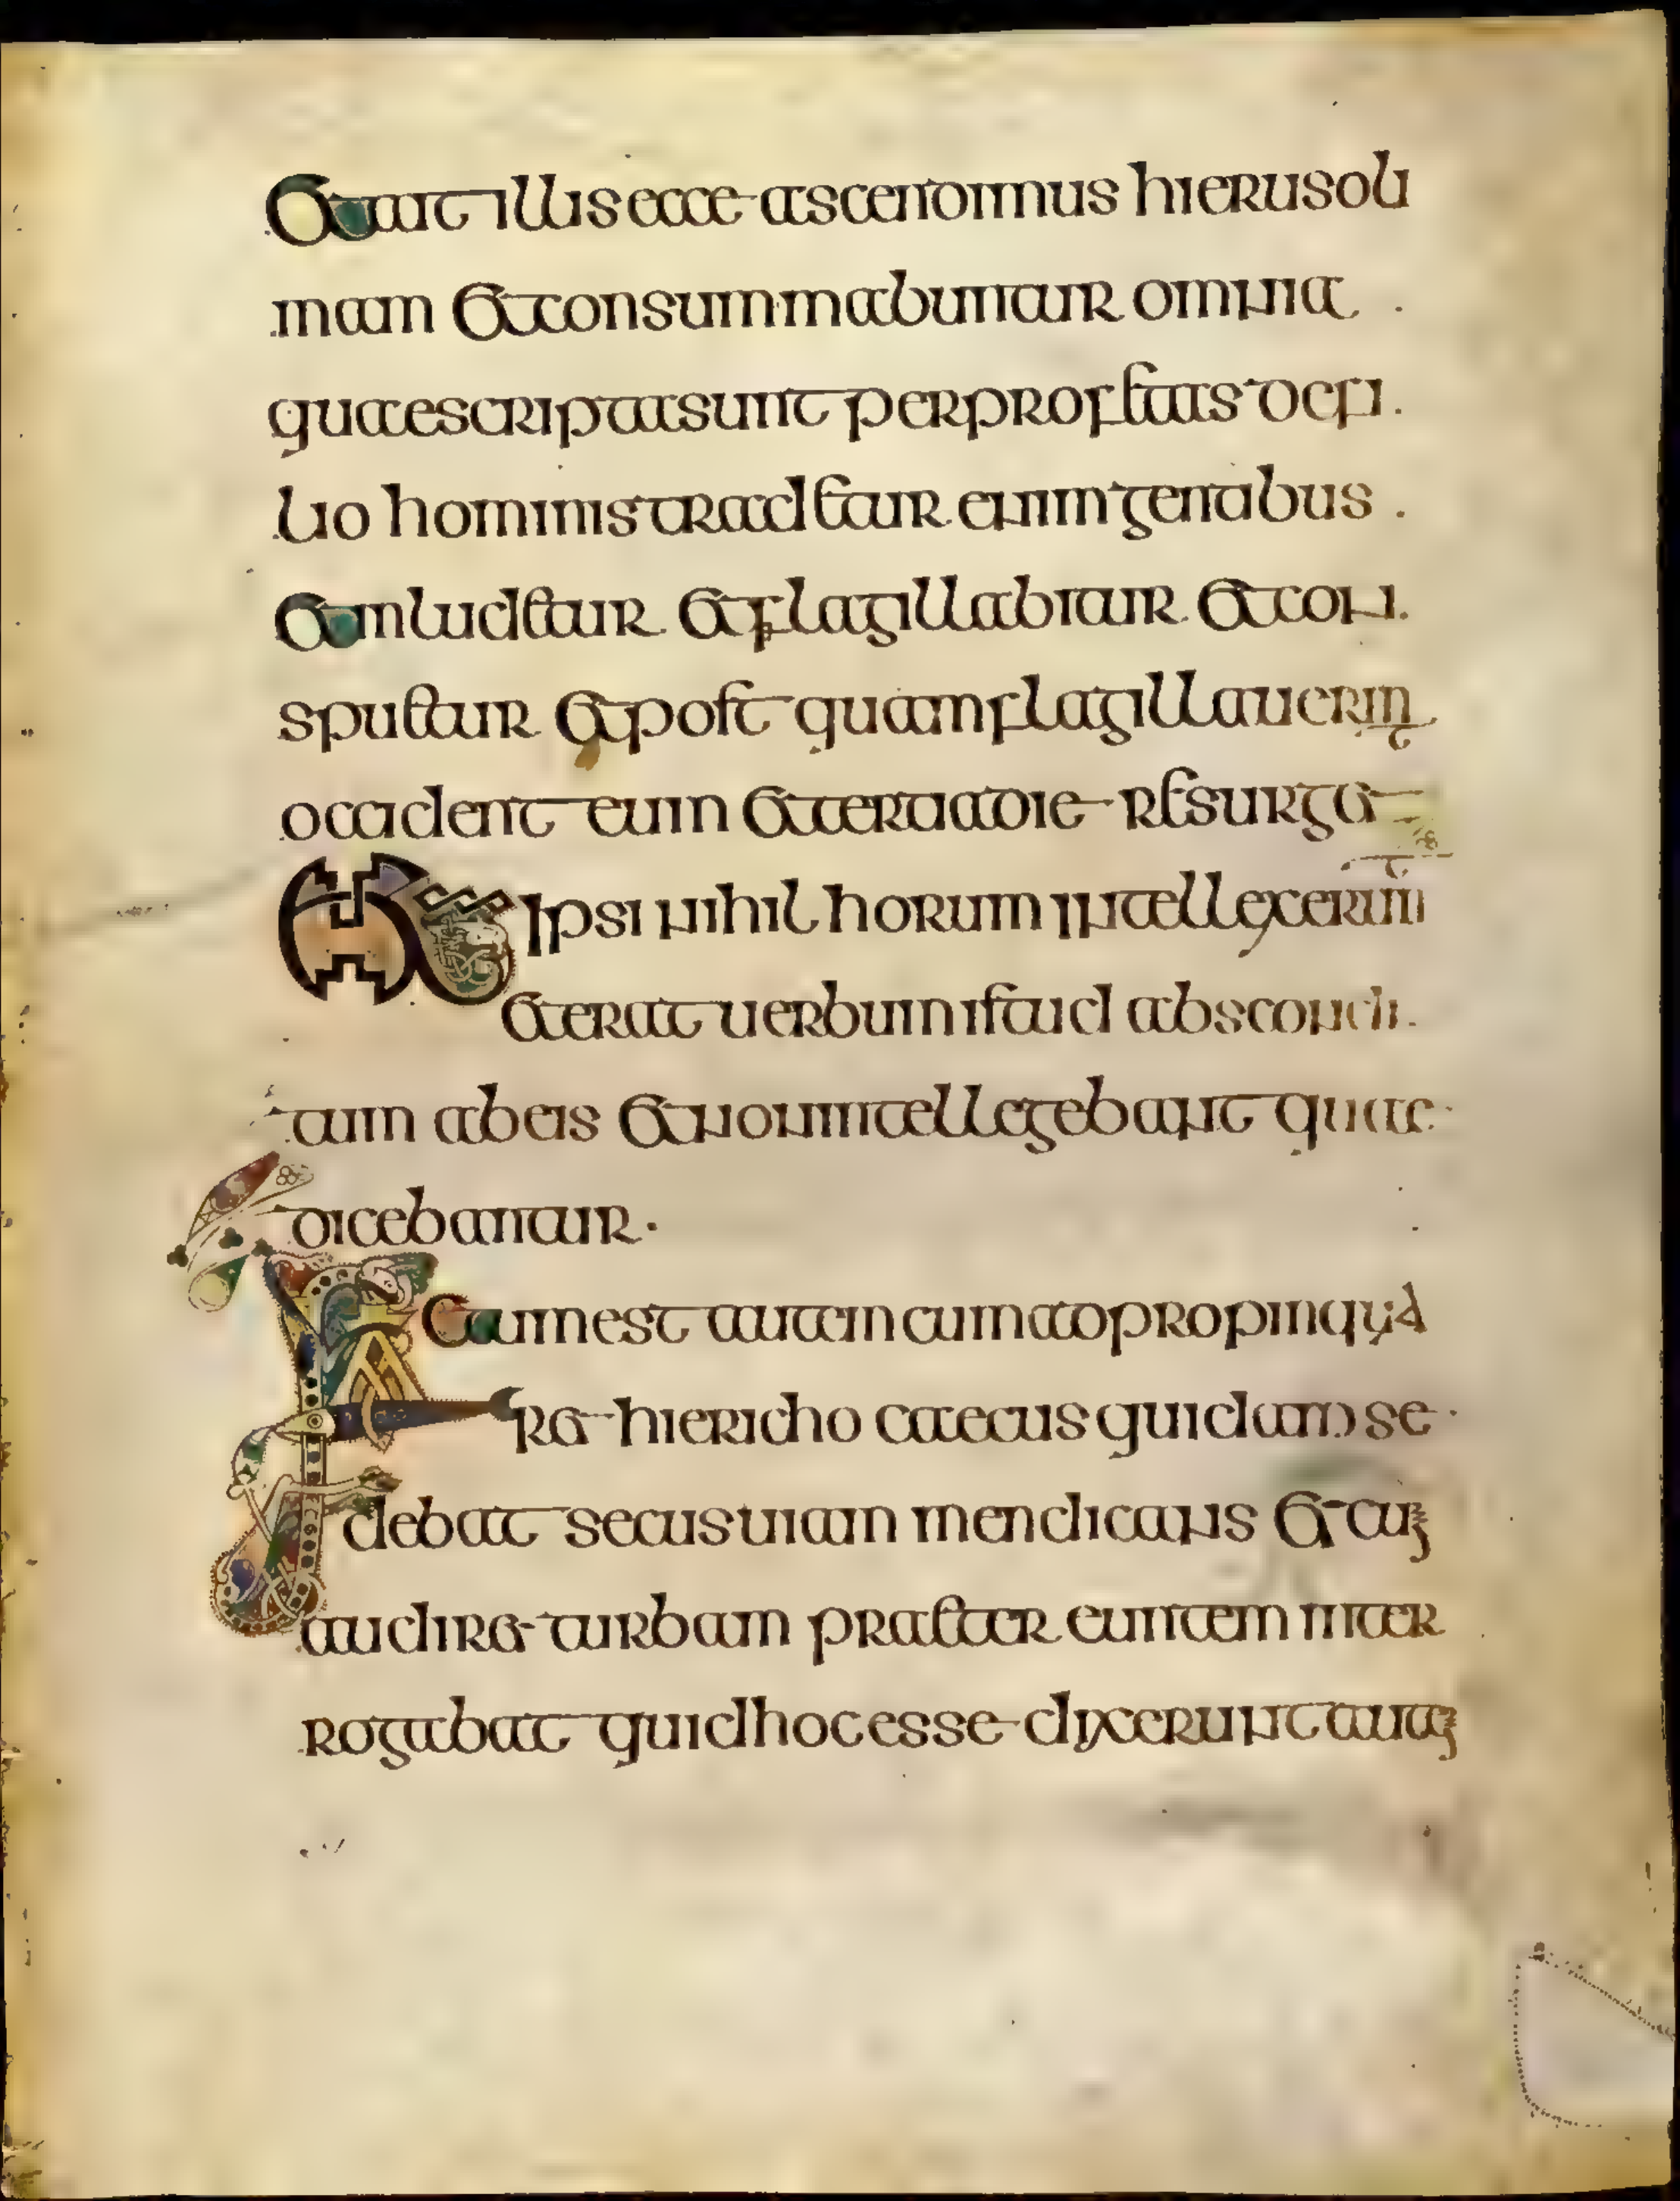 Et ait illis ecce ascendimus hierusoli
mam Et consummabuntur omnia
quae scripta sunt per profetas de fi
lio hominis tradetur enim gentibus
Et inludetur Et flagillabitur Et con
spuetur Et post quam flagillauerint
occident eum Et tertia die resurget
Et ipsi nihil horum intellexerunt
Et erat uerbum istud abscondi
tum ab eis Et non intellegebant quae
dicebantur
Factum est autem cum adpropinqua
ret hiericho caecus quidam se
debat secus uiam mendicans Et cum
audiret turbam praeter euntem inter
rogabat quid hoc esse dixerunt autem